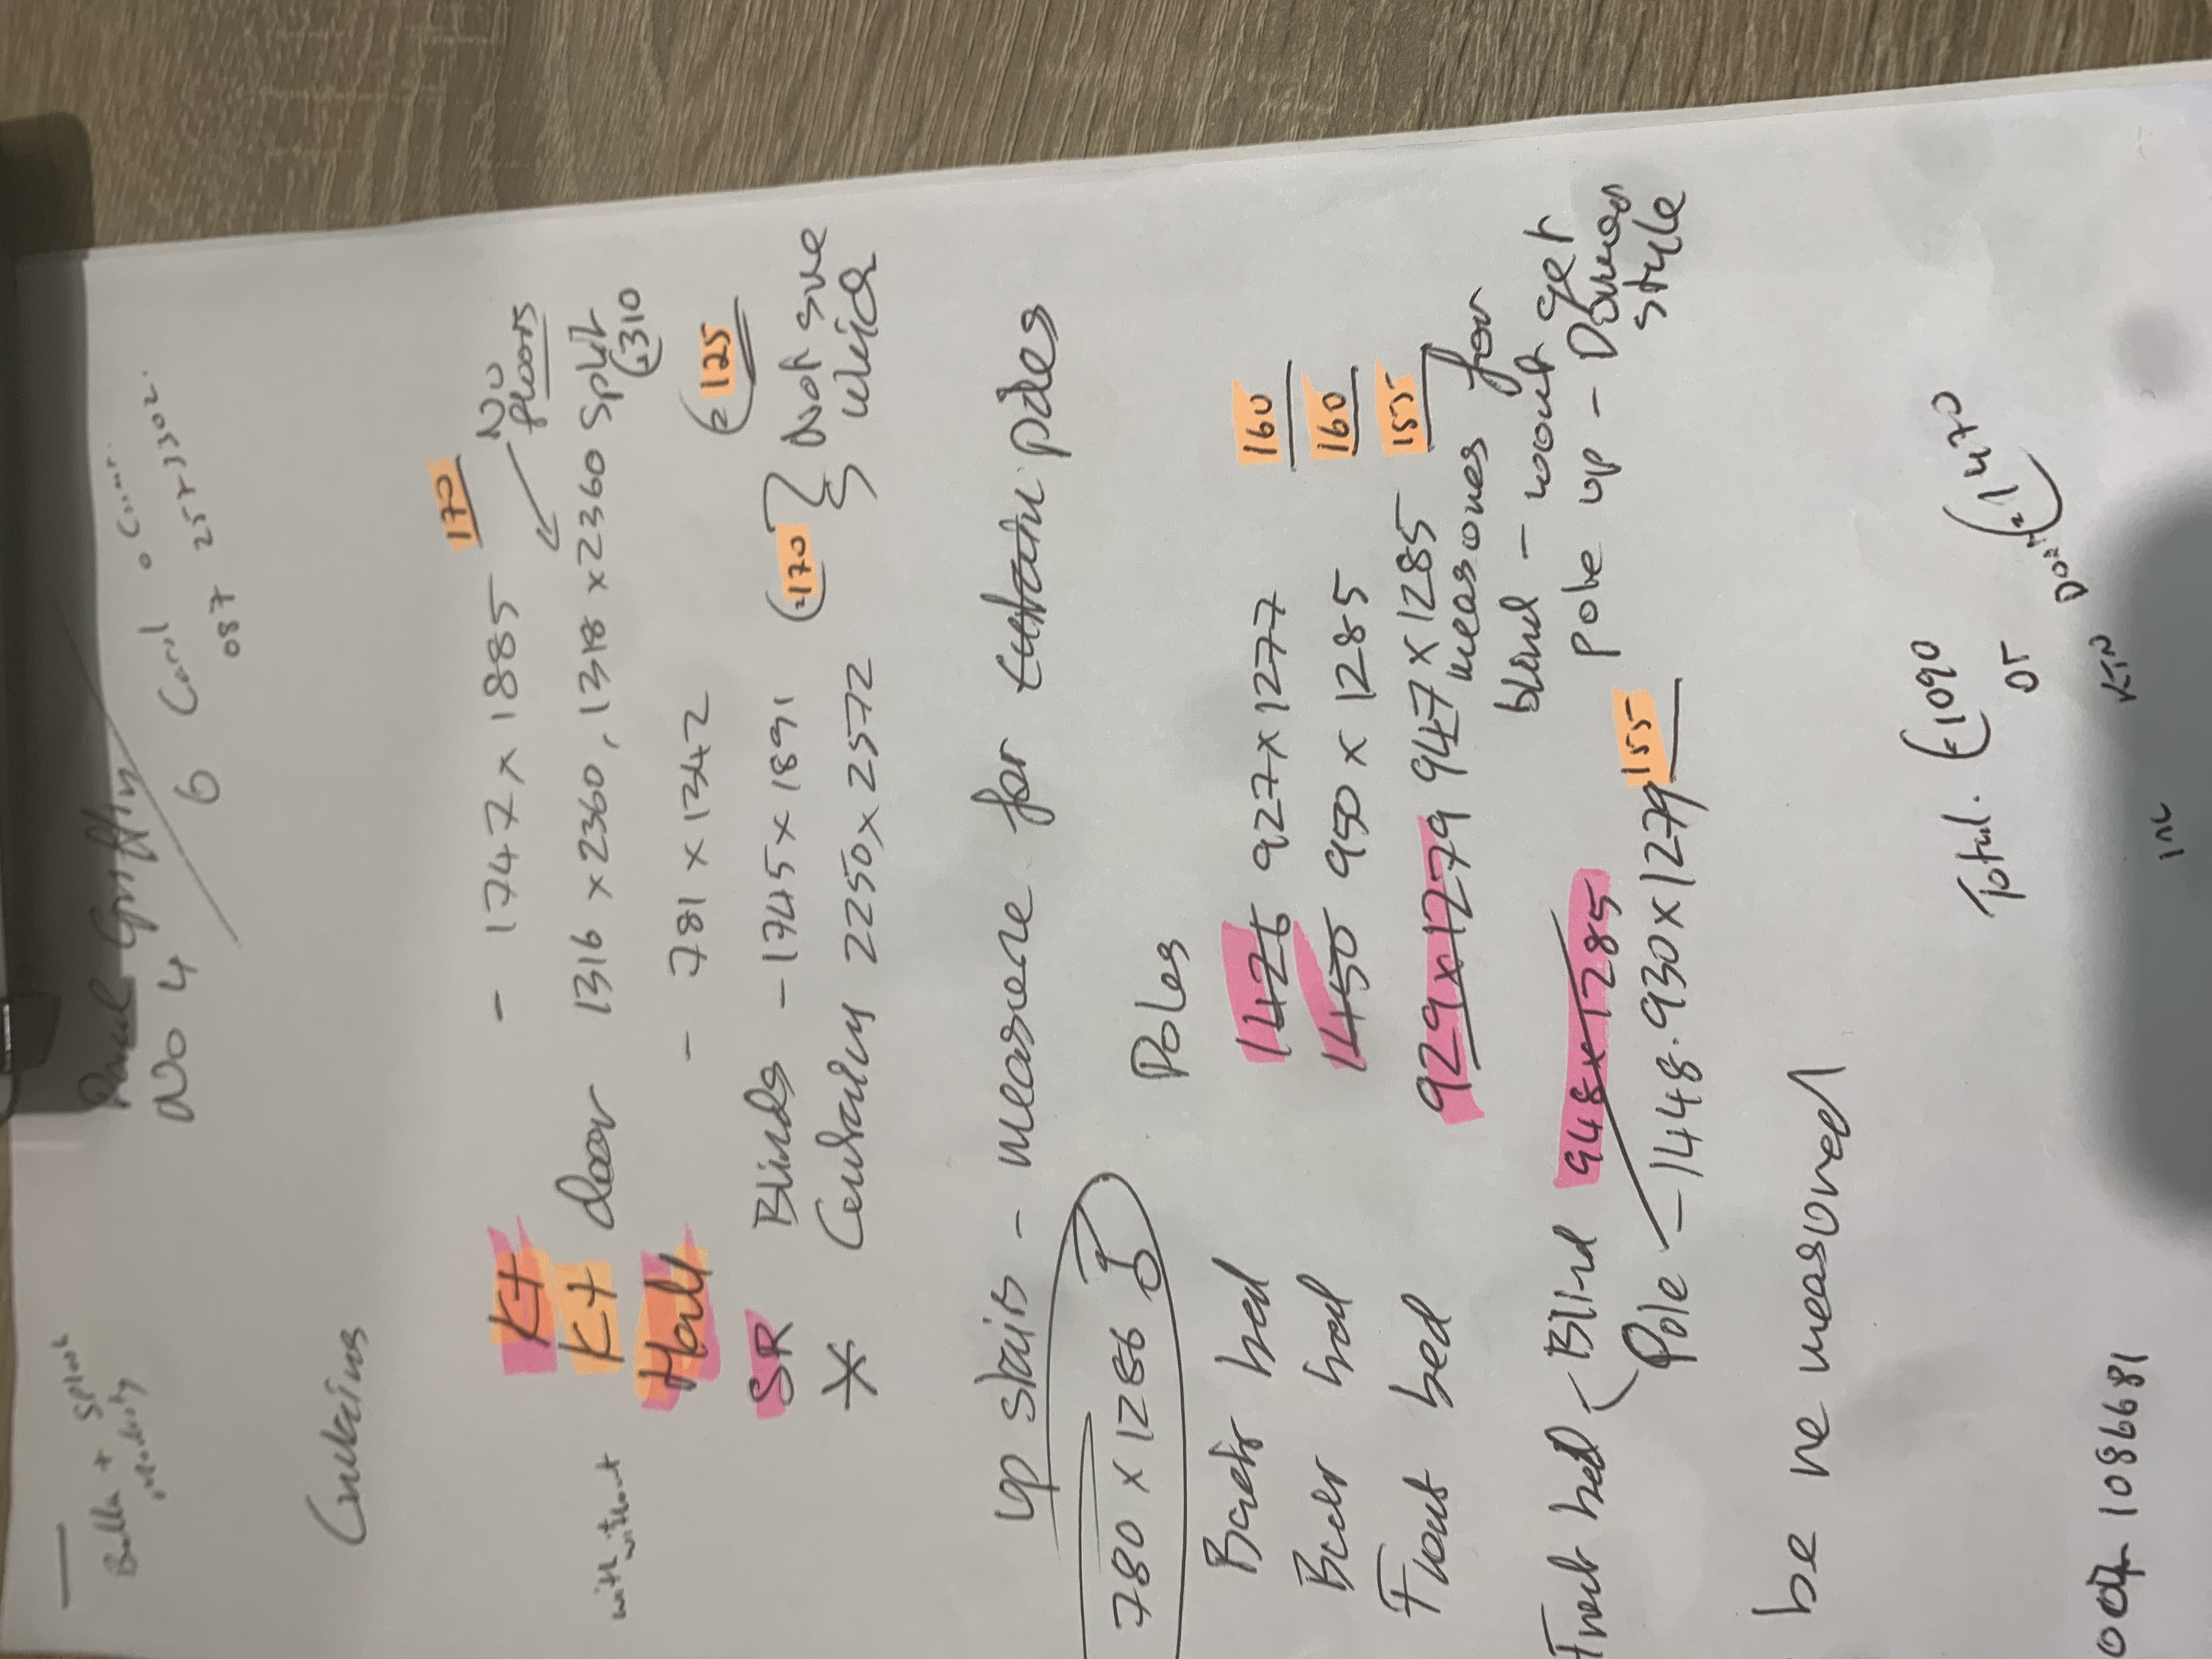 Bella + Splash
Paul Griffin
No 4 6 Carol
087 2573302
Curtains
Kt - 1747 x 1885 170
No floors
Kt door 1316 x 2360, 1318 x 2360 split €310
with without
Hall - 781 x 1342 €125
SR Blinds - 1745 x 1891 €170 } Not sure which
* Curtains 2250 x 2572
up stairs - measure for curtain poles
780 x 1286
Poles
Back bed 1426 927 x 1277 160
Back bed 1450 950 x 1285 160
Front bed 929 x 1279 947 x 1285 155
measures for
blind - wont get
pole up - Dormer
style
Front bed Blind 948 x 1285
Pole - 1448. 930 x 1279 155
be re measured
Total. €1090
or €1470
Door
Kit
inc
1086681